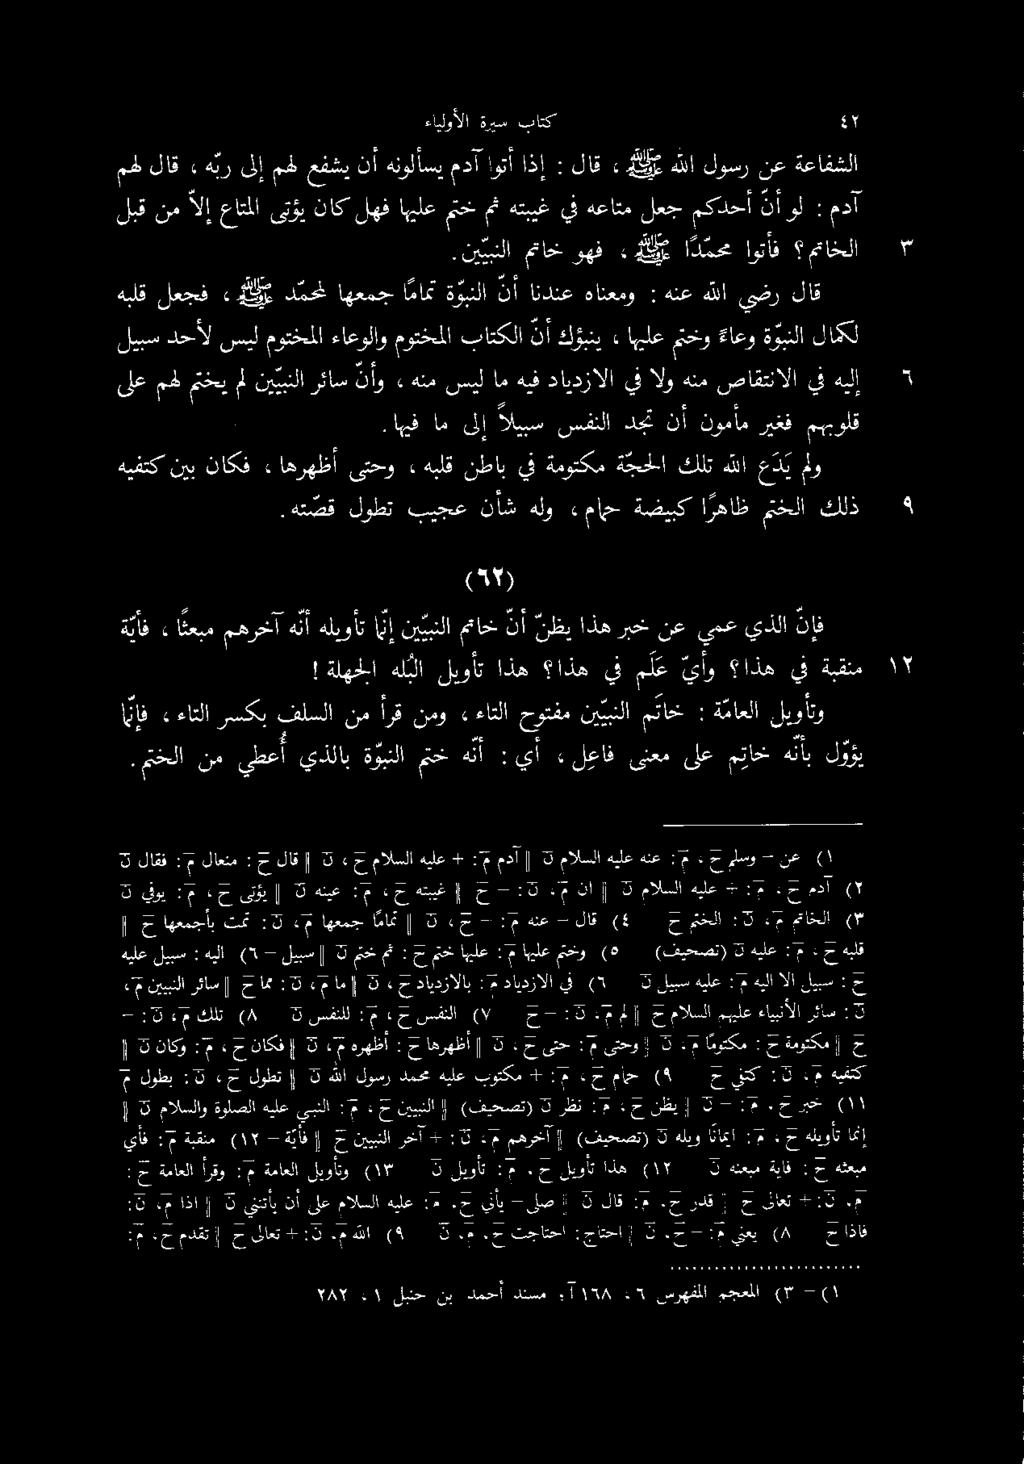 ٤٢ كتاب سيرة الأولياء
الشفاعة عن رسول الله ﷺ ، قال : إذا أتوا آدم يسألونه أن يشفع لهم إلى ربّه ، قال لهم
آدم : لو أنّ أحدكم جعل متاعه في غيبته ثم ختم عليها فهل كان يؤتى المتاع إلاّ من قبل
٣ الخاتم؟ فأتوا محمّدًا ﷺ ، فهو خاتم النبيّين.
قال رضي الله عنه : ومعناه عندنا أنّ النبوّة تمامًا جمعها لمحمّد ﷺ ، فجعل قلبه
لكمال النبوّة وعاءً وختم عليها ، ينبؤك أنّ الكتاب المختوم والوعاء المختوم ليس لأحد سبيل
٦ إليه في الانتقاص منه ولا في الازدياد فيه ما ليس منه ، وأنّ سائر النبيّين لم يختم لهم على
قلوبهم فغير مأمون أن تجد النفس سبيلاً إلى ما فيها.
ولم يَدَع الله تلك الحجّة مكتومة في باطن قلبه ، وحتى أظهرها ، فكان بين كتفيه
٩ ذلك الختم ظاهرًا كبيضة حمام ، وله شأن عجيب تطول قصّته.
(٦٢)
فإنّ الذي عمي عن خبر هذا يظنّ أنّ خاتم النبيّين إنّما تأويله أنّه آخرهم مبعثًا ، فأيّة
١٢ منقبة في هذا؟ وأيّ عَلَم في هذا؟ هذا تأويل البُله الجهلة!
وتأويل العامّة : خاتَم النبيّين مفتوح التاء ، ومن قرأ من السلف بكسر التاء ، فإنّما
يؤوّل بأنّه خاتِم على معنى فاعِل ، أي : أنّه ختم النبوّة بالذي أُعطي من الختم.
١) عن – وسلم ح ، م : عنه عليه السلام ن || آدم م : + عليه السلام ح ، ن || قال ح : منعال م : فقال ن
٢) آدم ح ، م : + عليه السلام ن || ان م ، ن : – ح || غيبته ح ، م : عينه ن || يؤتى ح ، م : يوفي ن
٣) الخاتم م ، ن : الختم ح ٤) قال – عنه م : – ح ، ن || تمامًا جمعها م ، ن : تمت بأجمعها ح ||
قلبه ح ، م : عليه ن (تصحيف) ٥) وختم عليها م : عليها ختم ح : ثم ختم ن || سبيل – ٦) اليه : سبيل عليه
ح : سبيل الا اليه م : عليه سبيل ن ٦) في الازدياد م : بالازدياد ح ، ن || ما م ، ن : مما ح || سائر النبيين م ،
ن : سائر الأنبياء عليهم السلام ح || لم م ، ن : – ح ٧) النفس ح ، م : للنفس ن ٨) تلك م ، ن : –
ح || مكتومة ح : مكتومًا م ، ن || وحتى م : حتى ح ، ن || أظهرها ح : أظهره م ، ن || فكان ح ، م : وكان ن ||
كتفيه م ، ن : كتفي ح ٩) حمام ح ، م : + مكتوب عليه محمد رسول الله ن || تطول ح ، ن : بطول م
١١) خبر ح ، م : – ن || يظن ح ، م : نظر ن (تصحيف) || النبيين ح ، م : النبي عليه الصلوة والسلام ن ||
إنما تأويله ح ، م : ايمانا ويله ن (تصحيف) || آخرهم م ، ن : + آخر النبيين ح || فأيّة – ١٢) منقبة م : فأي
مبعثه ح : فاية مبعثه ن ١٢) هذا تأويل ح ، م : تأويل ن ١٣) وتأويل العامة م : وقرأ العامة ح :
م ، ن : + تعالى ح || قدر ح ، م : قال ن || صلى – يأني ح ، م : عليه السلام على أن يأتنني ن || اذا م ، ن :
فاذا ح ٨) يعني م : – ح ، ن || احتاج : احتاجت ح ، م ، ن ٩) الله م ، ن : + تعالى ح || تقدم ح ، م :
١) – ٣) المعجم المفهرس ٦ ، ١٦٨آ ؛ مسند أحمد بن حنبل ١ ، ٢٨٢